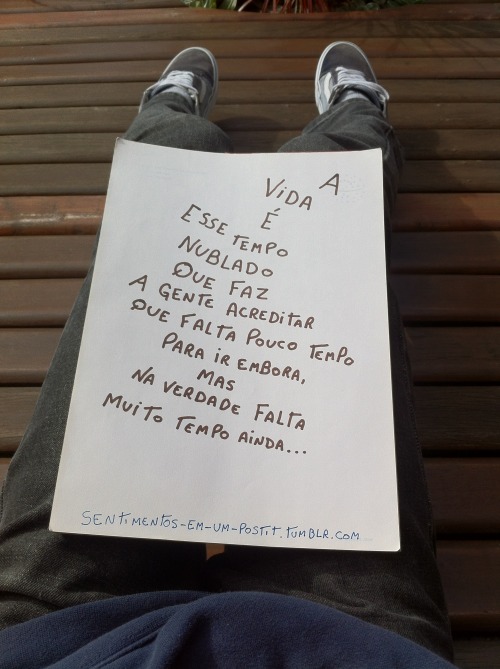 A
VIDA
É
ESSE TEMPO
NUBLADO
QUE FAZ
A GENTE ACREDITAR
QUE FALTA POUCO TEMPO
PARA IR EMBORA,
MAS
NA VERDADE FALTA
MUITO TEMPO AINDA...
SENTIMENTOS-EM-UM-POSTIT.TUMBLR.COM